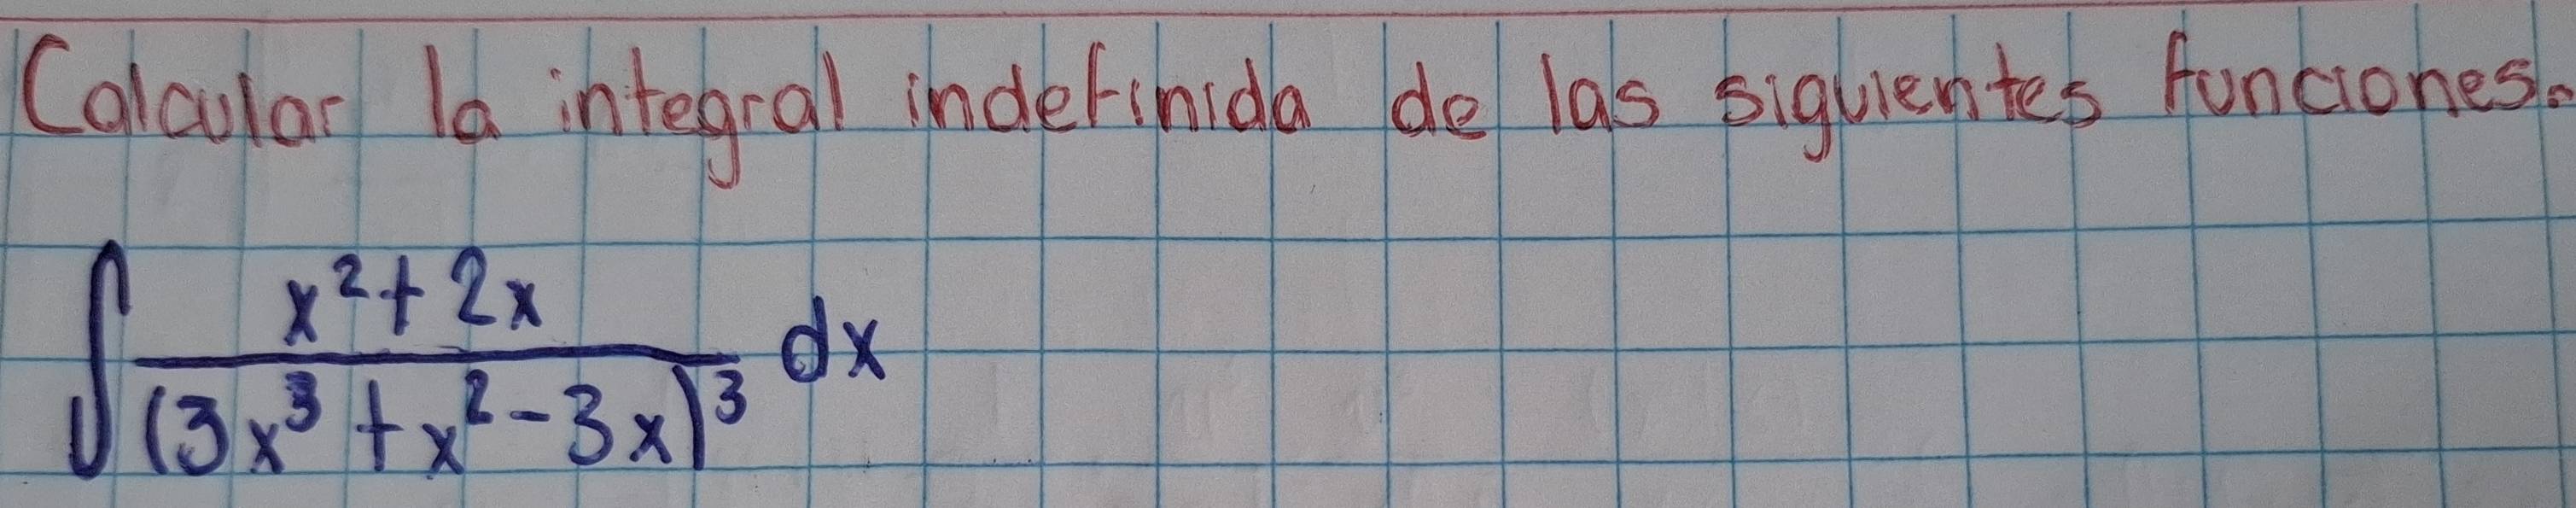 Calcular la integral indefinida de las siguientes funciones.
∫ (x² + 2x) / (3x³ + x² - 3x)³ dx